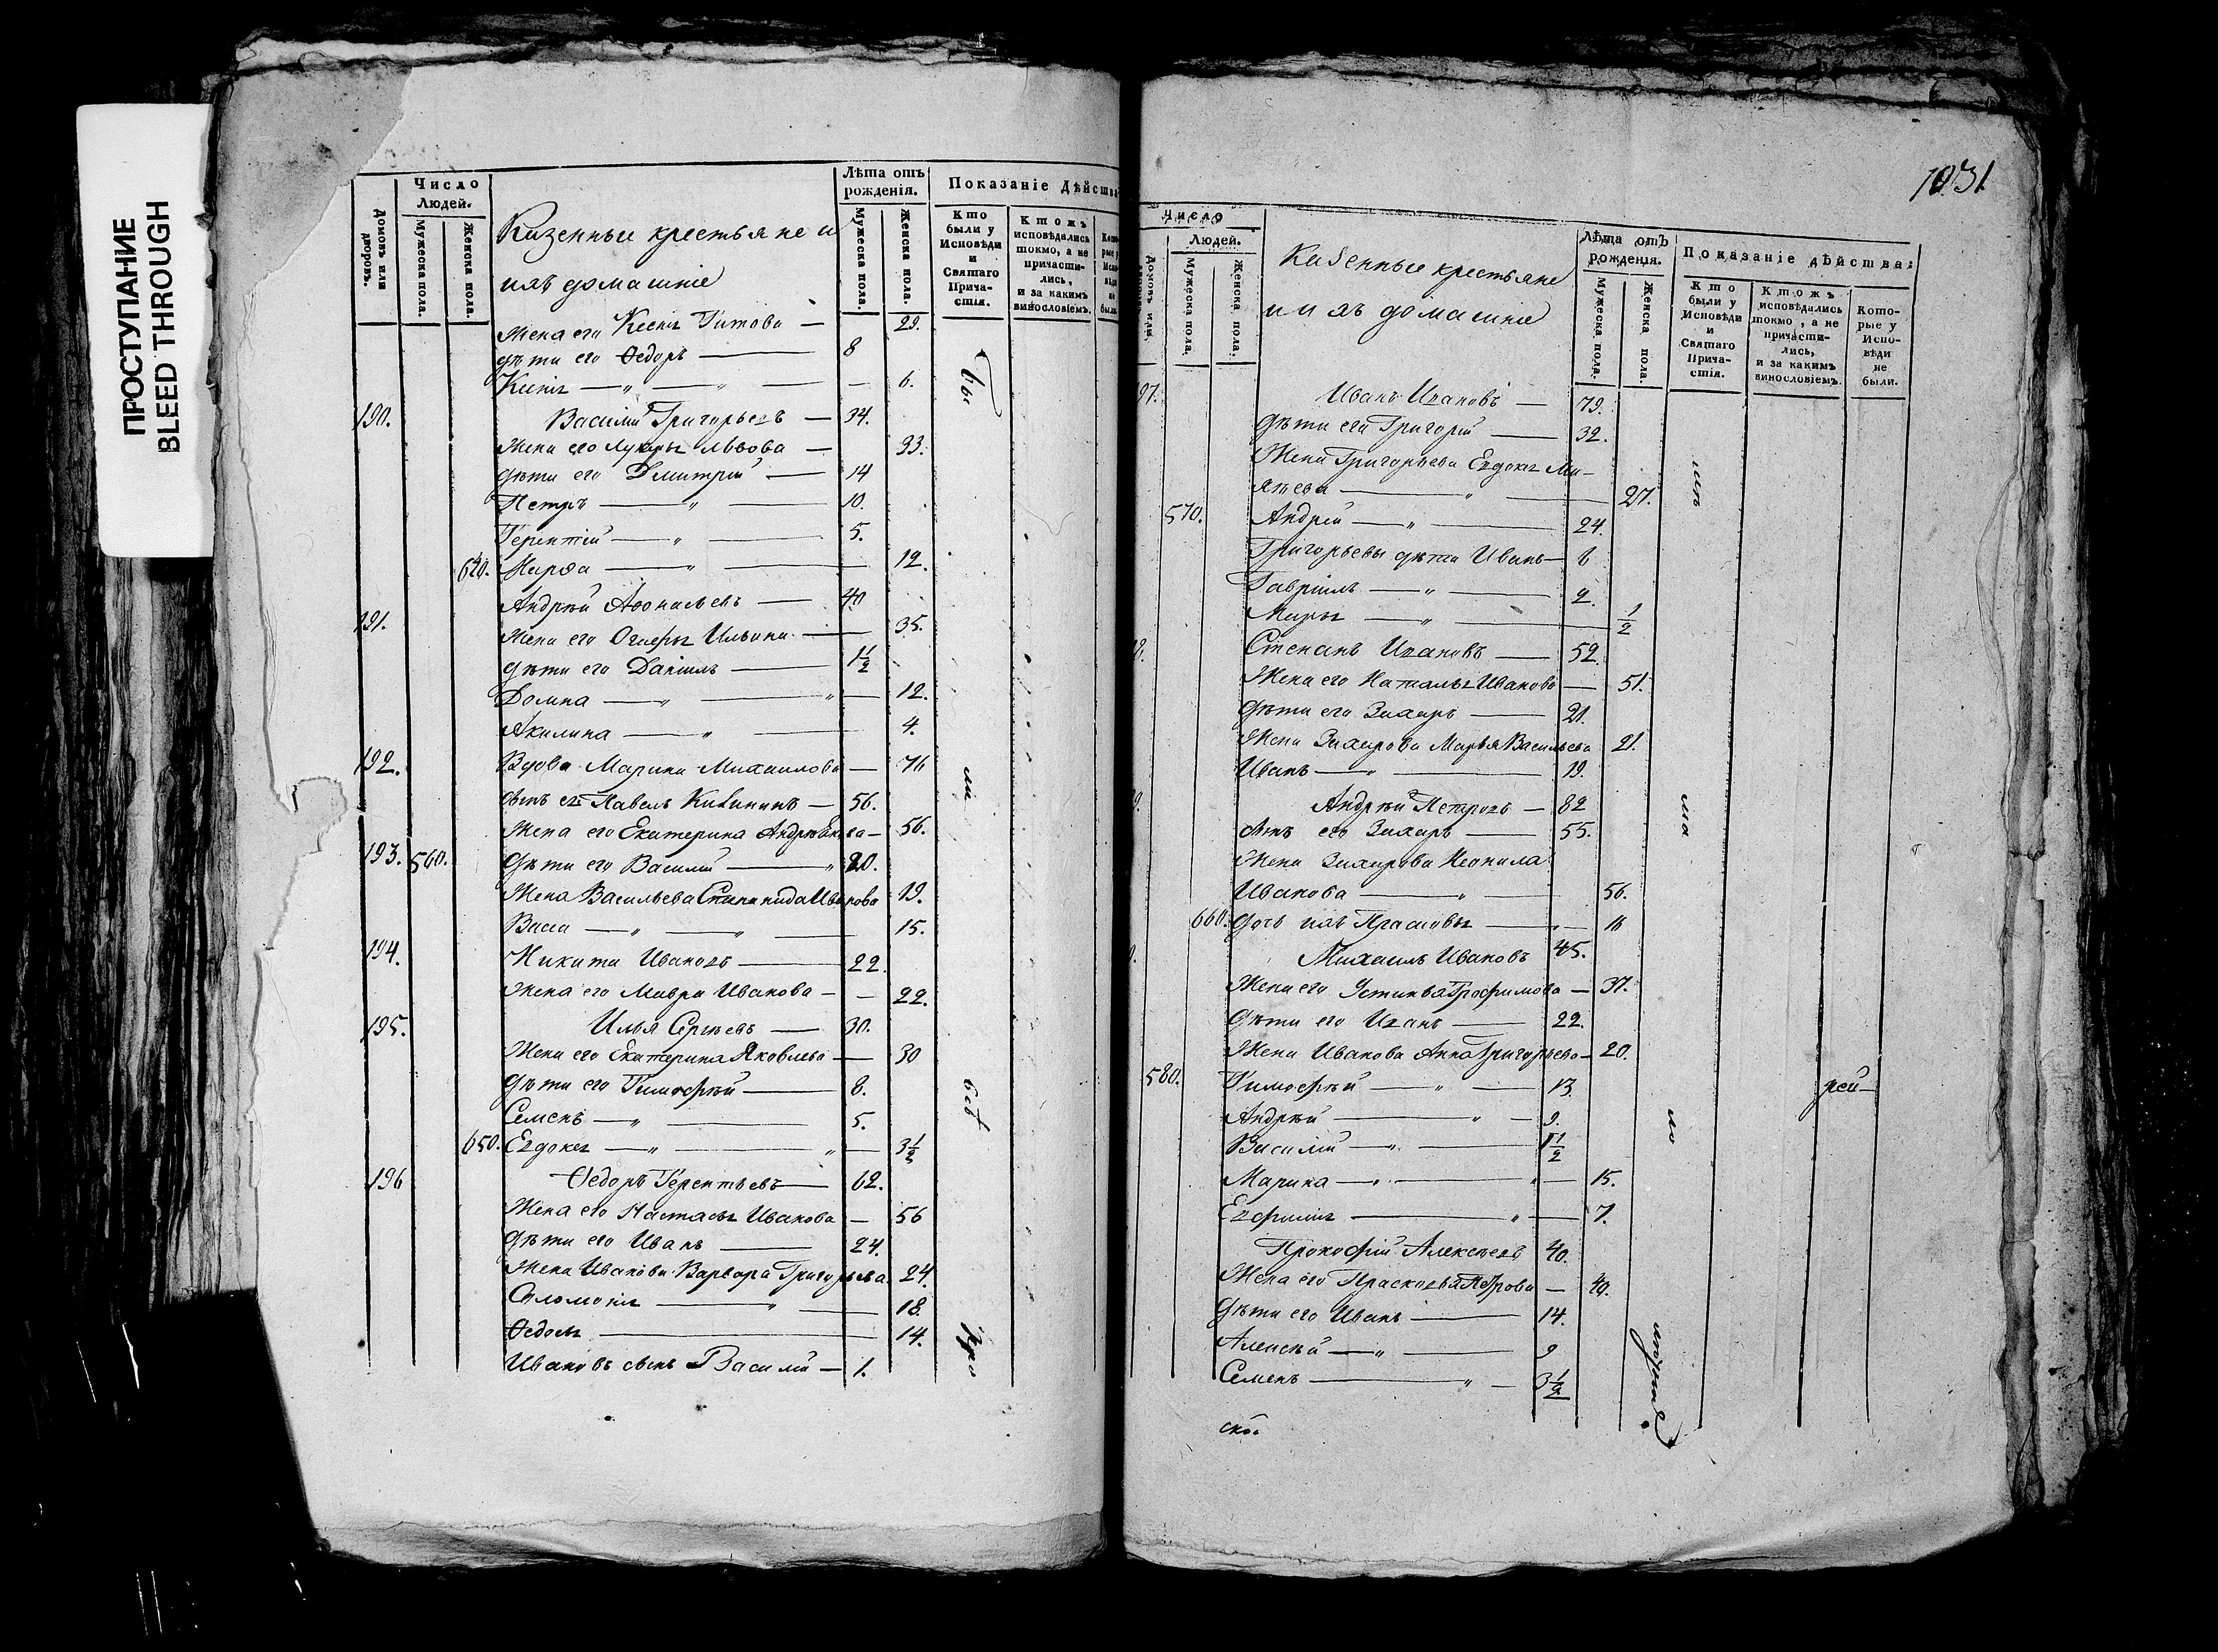 ПРОСТУПАНИЕ
BLEED THROUGH
Домовъ или дворовъ.
Число Людей.
Мужеска пола.
Женска пола.
Казенные крестьяне и
ихъ домашніе
Лѣта отъ рожденія.
Мужеска пола.
Женска пола.
Показаніе Дѣйства
Кто были у Исповѣди и Святаго Прича- стія.
Ктожъ исповѣдались токмо, а не причасти- лись, и за какимъ винословіемъ.
Жена его Ксенія Титова — 29.
дѣти его Ѳедоръ — 8
Ксенія — " — " — 6.
190. Василій Григорьевъ — 34.
Жена его Лукерья Львова — 33.
дѣти его Дмитрій — 14
Петръ — " — 10.
Терентій — " — 5.
640. Марѳа — " — 12.
Андрѣй Аѳонасьевъ — 40
191. Жена его Ильина — 35.
дѣти его Даніилъ — 1 1/2
Домна — " — " — 12.
Акилина — " — 4.
192. Вдова Марина Михаилова — 76
сынъ ея Павелъ — 56.
Жена его Екатерина Андрѣева — 56.
193. 560. дѣти его Василій — " 20.
Жена Васильева Иванова 19.
Васса — " — " — 15.
194. Никита Ивановъ — 22.
Жена его Мавра Иванова — 22.
195. Илья Сергѣевъ — 30.
Жена его Екатерина Яковлева — 30
дѣти его Тимофѣй — 8.
Семенъ — " — 5.
650. Евдокея — " — " — 3 1/2
196 Ѳедоръ Терентьевъ — 62.
Жена его Настасья Иванова — 56
дѣти его Иванъ — 24.
Жена Иванова Варвара Григорьева 24.
Соломонія — " — 18.
Ѳедосья — 14.
Ивановъ сынъ Василій — 1.
1031.
Число
Людей.
Мужеска пола.
Женска пола.
Казенные крестьяне
и ихъ домашніе
Лѣта отъ рожденія.
Мужеска пола.
Женска пола.
Показаніе дѣйства:
Кто были у Исповѣди и Святаго Прича- стія.
Ктожъ исповѣдались токмо, а не причасти- лись, и за какимъ винословіемъ.
Кото- рые у Испо- вѣди не были.
97. Иванъ Ивановъ — 79.
дѣти его Григорій — 32.
Жена Григорьева Евдокея Ми-
хѣева — " — 27.
570. Андрей — " — 24.
Григорьевы дѣти Иванъ — 6
Гавріилъ — " — 2.
Марья — " — 1/2
Степанъ Ивановъ — 52.
Жена его Наталья Иванова — 51.
дѣти его Захаръ — 21.
Жена Захарова Марья Васильева 21.
Иванъ — " — 19.
Андрѣй Петровъ — 82
сынъ его Захаръ — 55.
Жена Захарова Неонила
Иванова — " — 56.
660. дочь ихъ Прасковья — " — 16
Михаилъ Ивановъ 45.
Жена его Устинья Трофимова — 37.
дѣти его Иванъ — 22.
Жена Иванова Анна Григорьева — 20.
580. Тимофѣй — " — 13.
Андрѣй — " — 9.
Василій — " — 1 1/2
Марина — " — " — 15.
Евфимія — " — 7.
Прокофій Алексѣевъ 40.
Жена его Прасковья Петрова — 40.
дѣти его Иванъ — 14.
Алексѣй — " — 9
Семенъ — " — 3 1/2